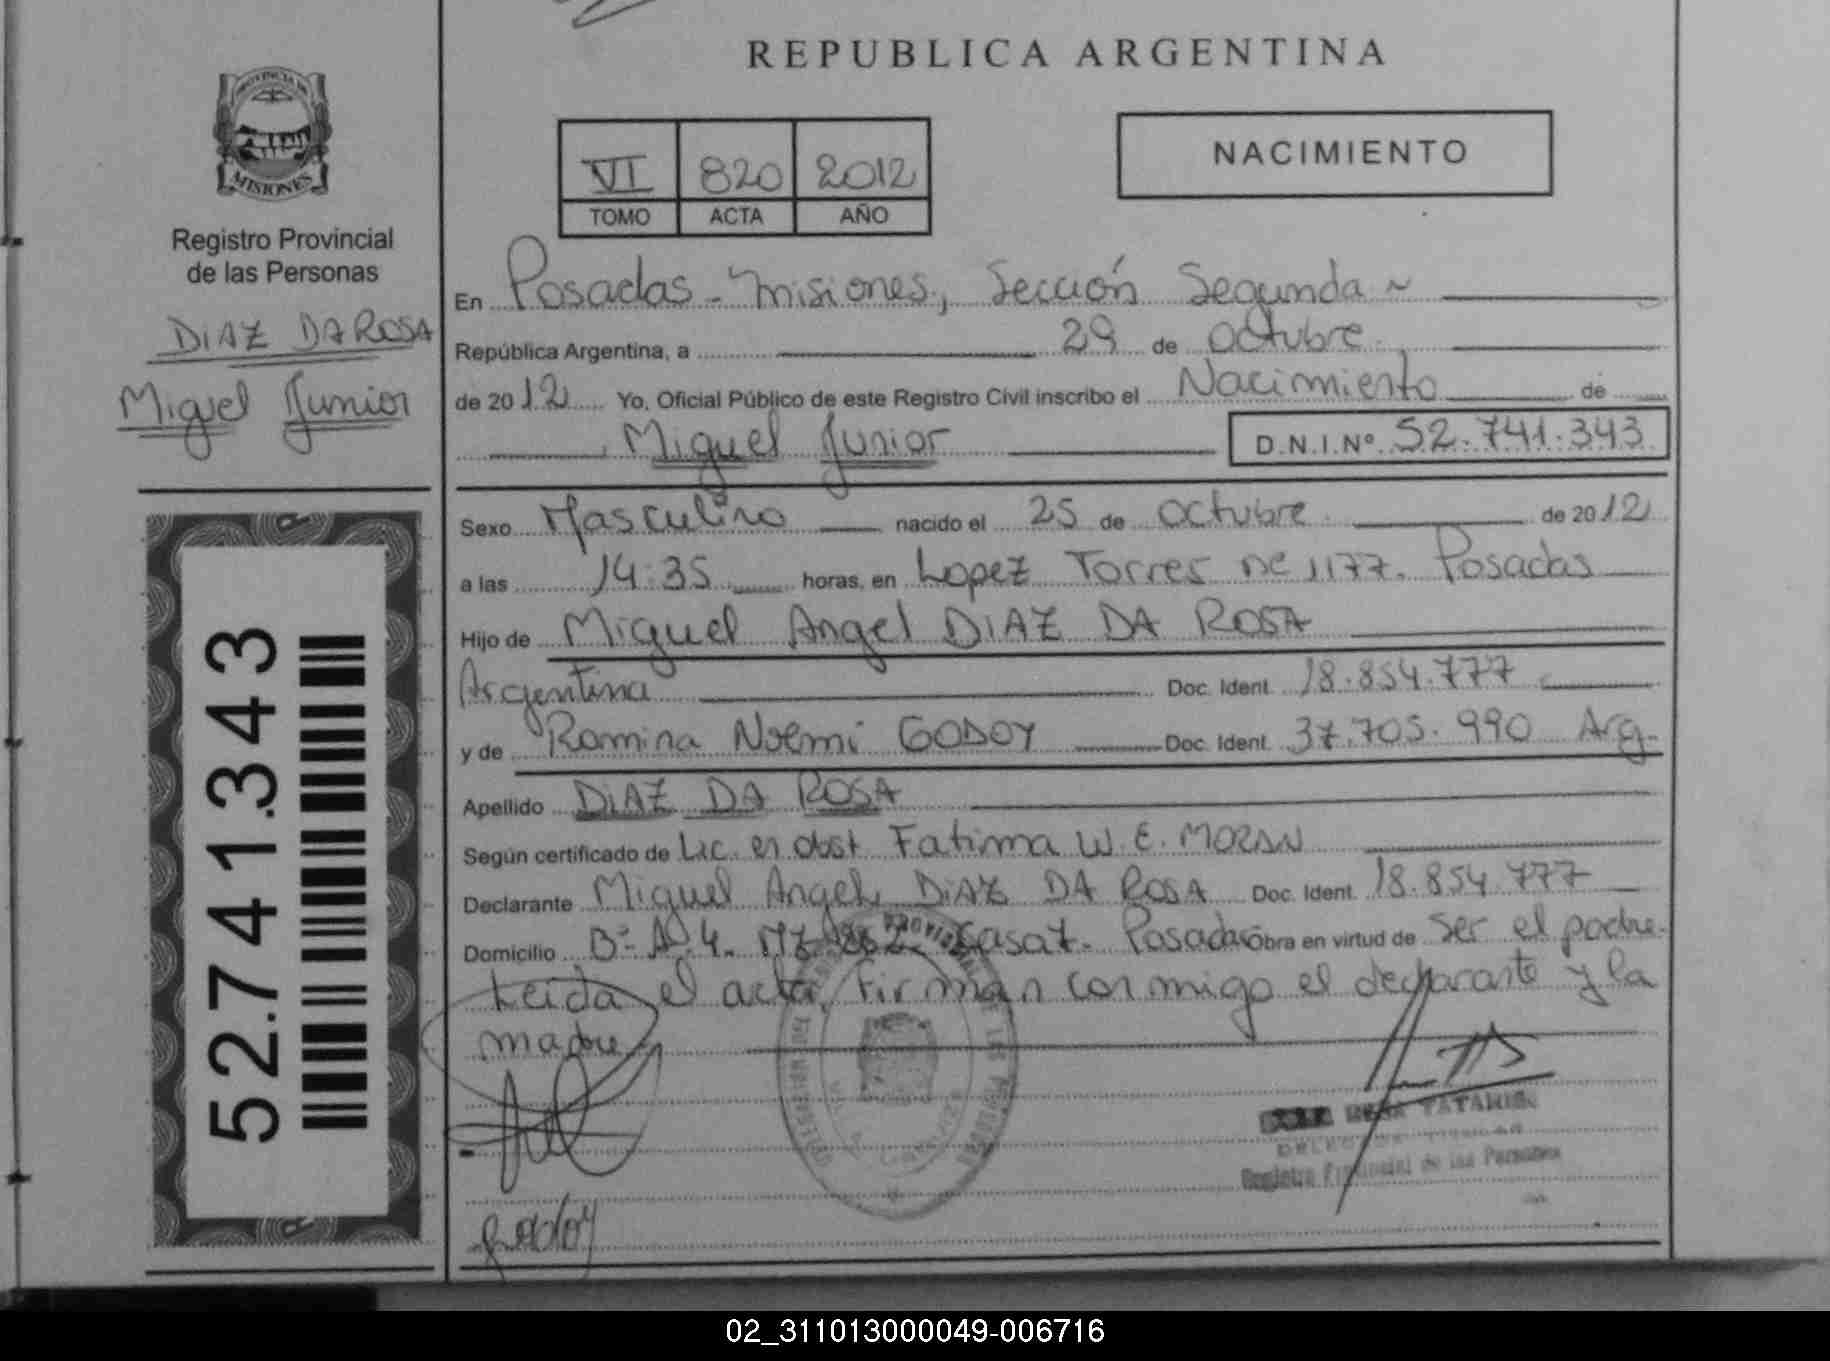 REPUBLICA ARGENTINA
PROVINCIA DE
MISIONES
Registro Provincial
de las Personas
DIAZ DA ROSA
Miguel Junior
VI 820 2012
TOMO ACTA AÑO
NACIMIENTO
En Posadas - Misiones, Sección Segunda ~
República Argentina, a 29 de octubre
de 2012 Yo, Oficial Público de este Registro Civil inscribo el Nacimiento de
Miguel Junior D.N.I.Nº 52.741.343
Sexo Masculino nacido el 25 de octubre de 2012
a las 14:35 horas, en Lopez Torres Nº 1177. Posadas
Hijo de Miguel Angel DIAZ DA ROSA
Argentina Doc. Ident. 18.854.777
y de Romina Noemi GODOY Doc. Ident. 37.705.990 Arg.
Apellido DIAZ DA ROSA
Según certificado de Lic. en obst Fatima W. E. MORAN
Declarante Miguel Angel DIAZ DA ROSA Doc. Ident. 18.854.777
Domicilio Bº A 4. Mz Casa Posadas Obra en virtud de ser el padre.
Leida el acta, firman conmigo el declarante y la
madre
Registro Provincial de las Personas
Godoy
52.741.343
02_311013000049-006716